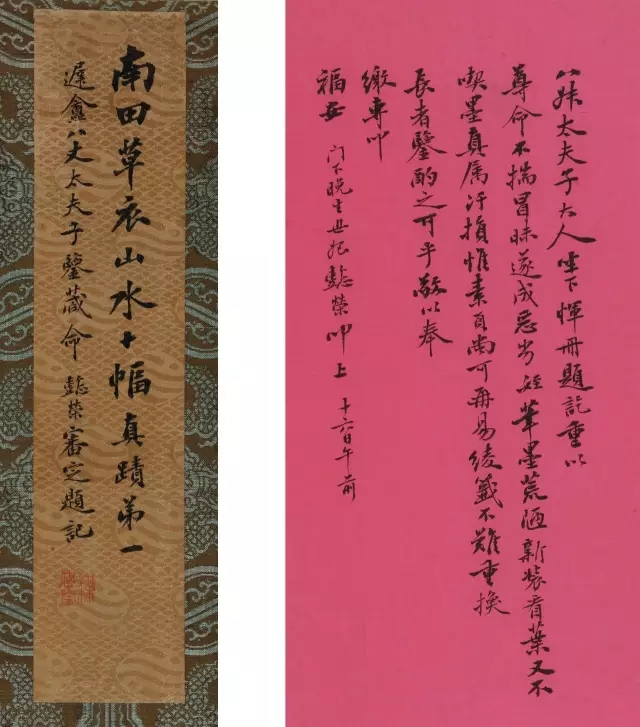 南田草衣山水十幅真蹟第一
遲盦八丈太夫子鑒藏命 懿榮審定題記
八 太夫子大人坐下惲冊題記重以
尊命不揣冒昧遂成惡劣姪筆墨荒陋新裝首葉又不
喫墨真属汙損惟素頁尚可再易綾籤不難重換
長者鑒酌之可乎敬以奉
繳專叩
福安 门下晚生世姪懿榮叩上 十六日午前